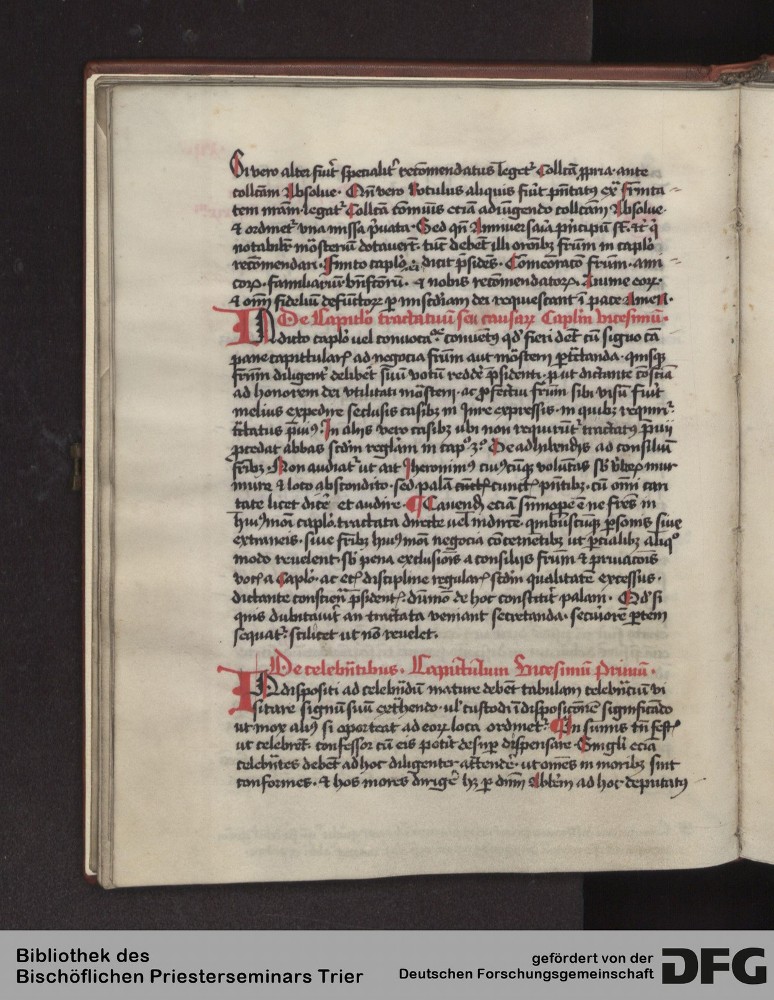 Si vero alter fuit specialit recomendatus leget Collcta ppria ante
collcam Absolue. Qn vero Rotulus aliquis fuit pntatus ex frnita
tem nram legat Collcta comunis ecia adiungendo collcam Absolue
& ordinet vna missa puata. Sed qn Anniuersaria pncipum
notabilit mosterium dotauert tuc debet illi oronibz frum in caplo
recomendari. Finito caplo dicit psidens. Comeoraco frum. ami
corz. familiarium bnfctorum. & nobis recomendatorz. Anime eorz.
& oim fidelium defunctorz p miscdiam dei requiescant i pace Amen.
De Capitulo tractatuum seu causarz Caplm vicesimum.
Indicto caplo uel conuocato conuentu qd fieri debet cum signo
pane capitulari ad negocia frum aut monstery ptractanda. quisque
frum diligent delibet suum votum reddere psidenti, put dictante conscia
ad honorem dei vtilitati monstery. ac profectui frum sibi visum fuit
melius expedire seclusis casibz in Jure expressis. in quibz requirit
tractatus pmus. In aliis vero casibz ubi non requirunt tractatus pmii
pcedat abbas scdm reglam in cap 3. De adhibendis ad consilium
fribz. Non audiat ut ait Iheronimus cuiuscumque voluntas sub verborz mur
mure & loco abscondito. sed palam cunctis pntibz. cum omni cari
tate licet dicere et audire. Cauendum ecia summopere ne fres in
huiusmodi caplo. tractata directe uel indirecte. quibuscumque psonis siue
extraneis. siue fribz huiusmodi negocia concernentibz ut pcialibz aliquo
modo reuelent. sub pena exclusionis a consilijs frum & priuacionis
vocis a Caplo. ac etiam discipline regularis scdm qualitatem excessus.
dictante consciencia psidentis. dummodo de hoc constiterit palam. Qd si
quis dubitauit an tractata veniant secretanda. securiorem ptem
sequat. scilicet ut non reuelet.
De celebrantibus. Capitulum Vicesimum Primum.
Indispositi ad celebrandum mature debent tabulam celebrancium vi
sitare signum suum extrahendo. uel custodi indisposicionem significando
ut mox alius si oporteat ad eorz loca ordinetur. In summis tn fest
ut celebrent. confessor cum eis poterit desuper dispensare. Singli ecia
celebrantes debent ad hoc diligenter attendere. ut omnes in moribz sint
conformes. & hos mores dirigere habet p dnm Abbatem ad hoc deputatus
Bibliothek des
Bischöflichen Priesterseminars Trier
gefördert von der
Deutschen Forschungsgemeinschaft DFG